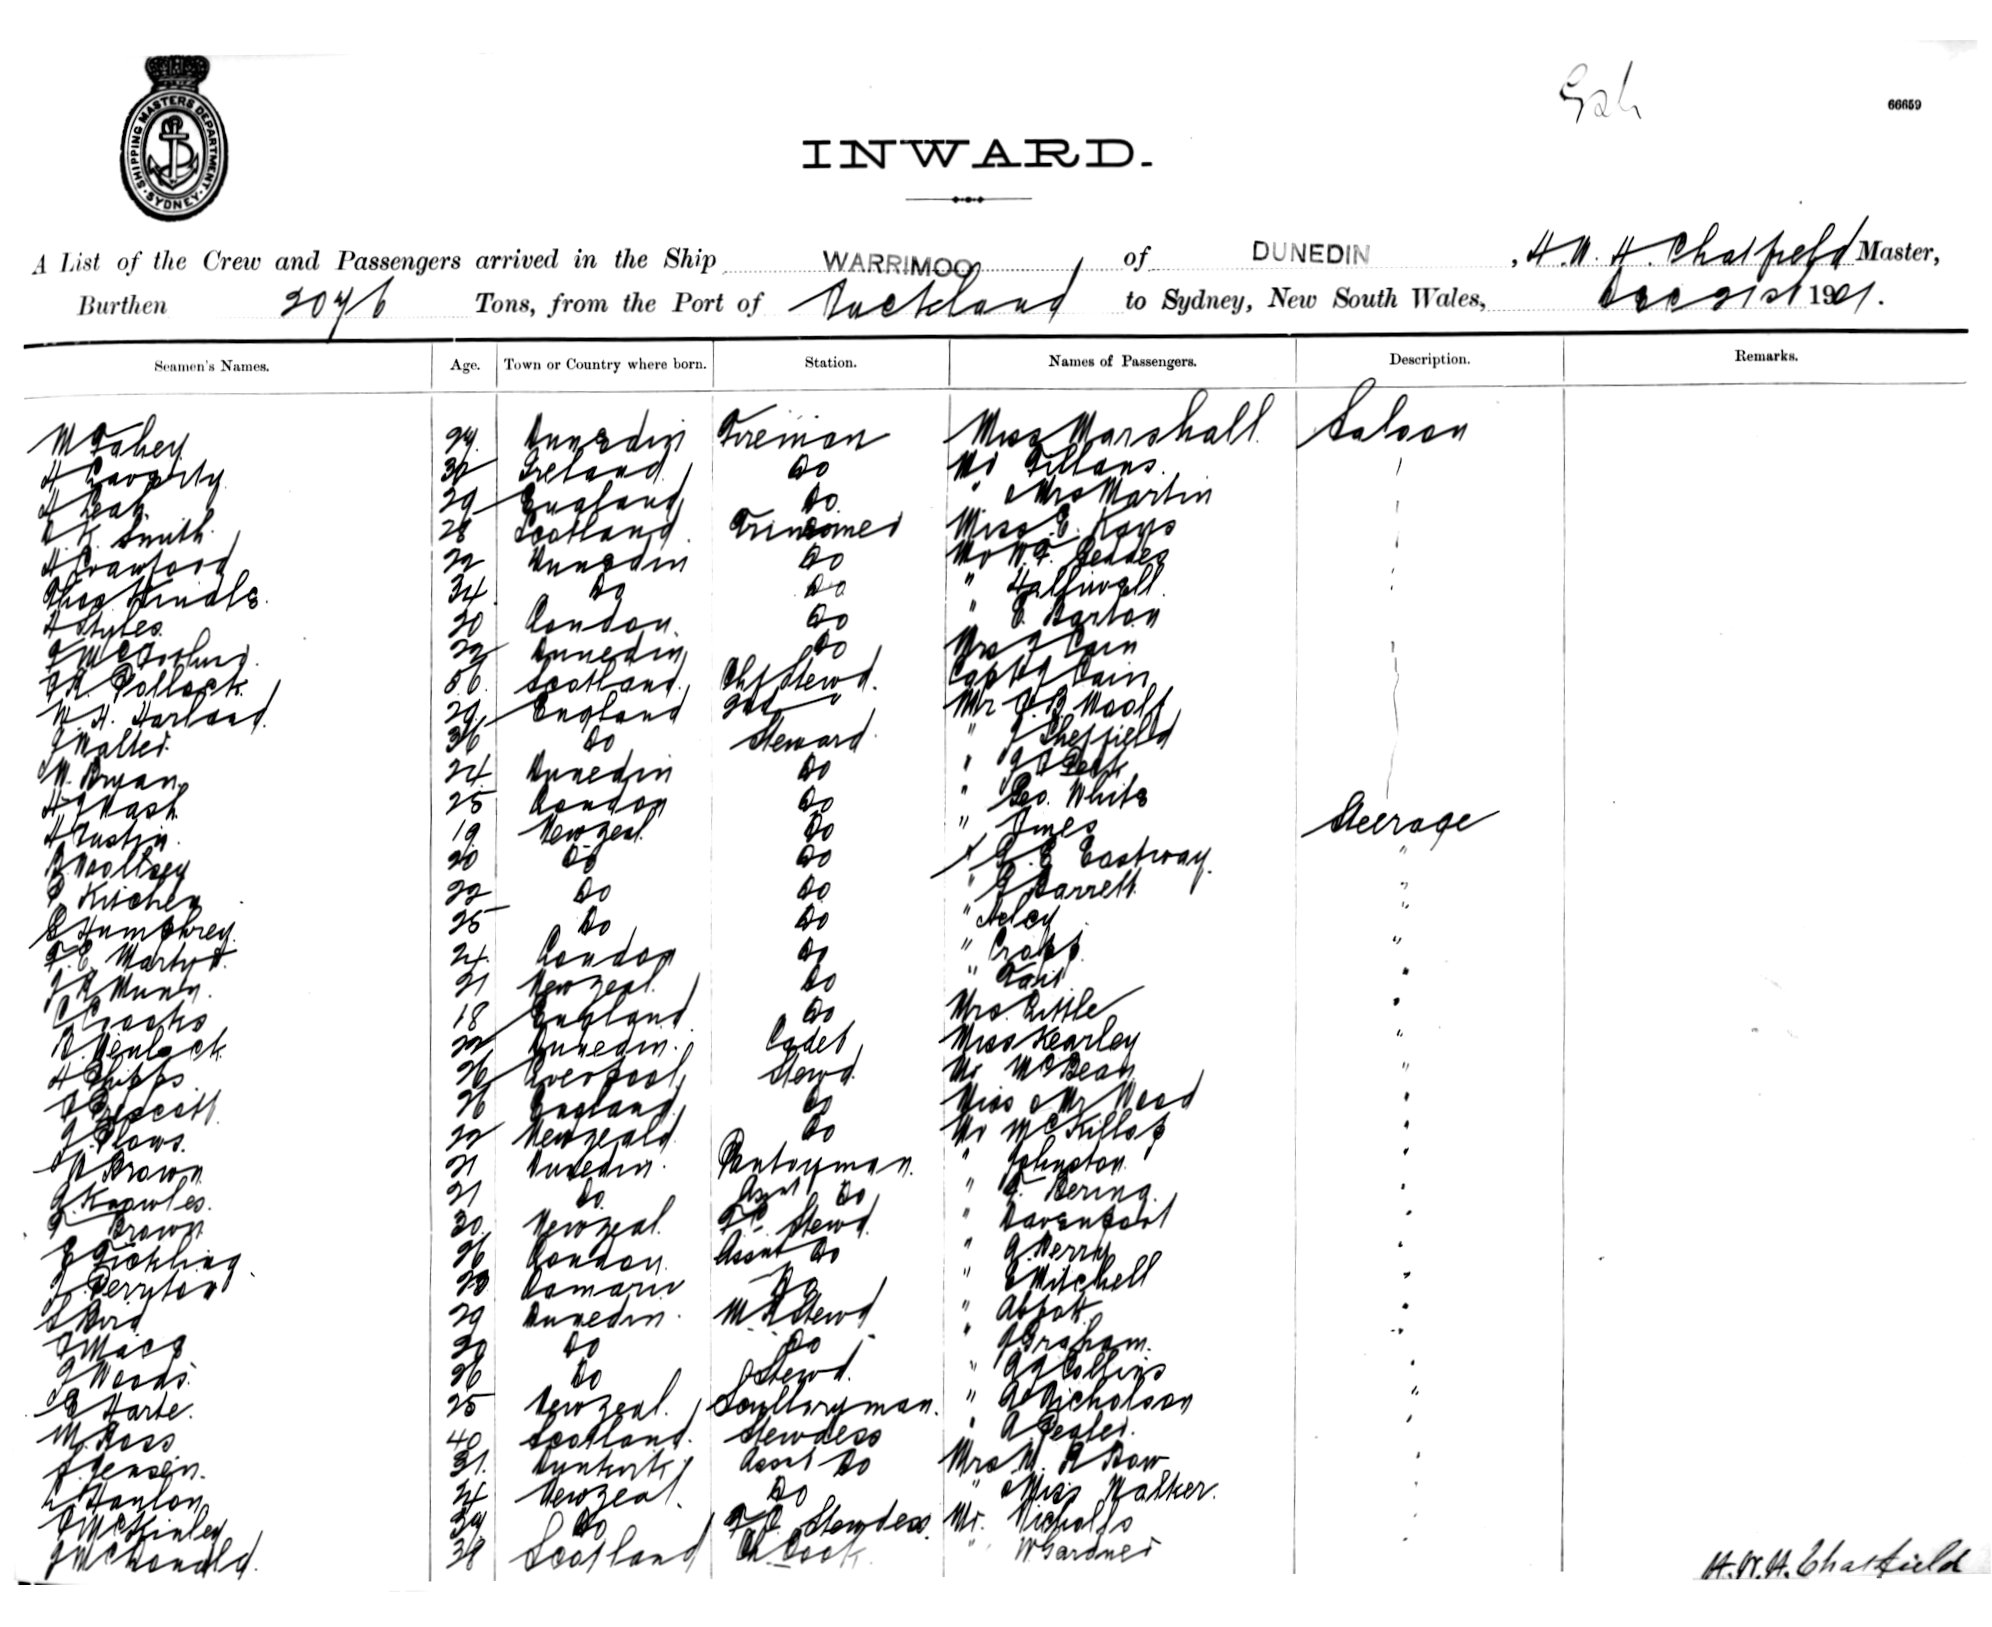 SHIPPING MASTERS DEPARTMENT · SYDNEY ·
66659
INWARD.
A List of the Crew and Passengers arrived in the Ship WARRIMOO of DUNEDIN, H. W. H. Chatfield Master,
Burthen 2076 Tons, from the Port of Auckland to Sydney, New South Wales, Dec 21st 1901.
Seamen's Names. Age. Town or Country where born. Station. Names of Passengers. Description. Remarks.
M Fahey 27 Dunedin Fireman Miss Marshall Saloon
H 32 Ireland Do Mr Gillans
H Leah 29 England Do " Mrs Martin
Smith 28 Scotland Trimmer Miss E. Kays
H Crawford 22 Dunedin Do Mr W. F. Geddes
Thos Hinds 34 Do Do " Halliwell
H Styles 20 London Do " E. Barton
J McArthur 22 Dunedin Do Mrs J Cain
Pollock 56 Scotland Chf Stewd. Capt J Cain
W. H. Harland 29 England 2nd " Mr B Woolf
J Walter 36 Do Steward " J Sheffield
W. Bryan 24 Dunedin Do "
H J Nash 25 London Do " Geo. White
H Austin 19 New Zeal. Do " Jones Steerage
B Woolley 20 Do Do " G. E Eastway "
Kitchen 22 Do Do " G Barrett "
E Humphrey 25 Do Do " "
F. E. Martyn 24 London Do " Cropp "
J R Munn 21 New Zeal. Do " "
C Crooks 18 England Do Mrs Little "
R. Wenlock 22 Dunedin Cadet Miss Kearley "
H Phipps 26 Liverpool Stewd Mr McBean "
Prescott 26 England Do Miss & Mr Wood "
J. Plows 22 New Zeald Do Mr McKillop "
W Brown 21 Dunedin Pantryman " Johnston "
J. Knowles 21 Do Asst Do " F. Bering "
F Brown 30 New Zeal. F.C. Stewd " Davenport "
E Tickling 26 London Assnt Do " A. Berry "
J. Perryton 20 Oamaru Do " E Mitchell "
S Bird 29 Dunedin M. R Stewd " Abbott "
Mace 20 Do Do " J Graham "
J Woods 26 Do Stewd. " A J Collins "
E Harte 25 New Zeal. Sculleryman " A Nicholson "
M. Ross 40 Scotland Stewdess " A Pegler "
S. Jensen 31 Dunkirk Assnt Do Mrs W. R Bow "
L Hanlon 24 New Zeal. Do " & Miss Walker "
J McKinley 39 Do F. C. Stewdess Mr. Nicholls "
J McDonald 38 Scotland Ch. Cook " W Gardner "
H. W. H. Chatfield